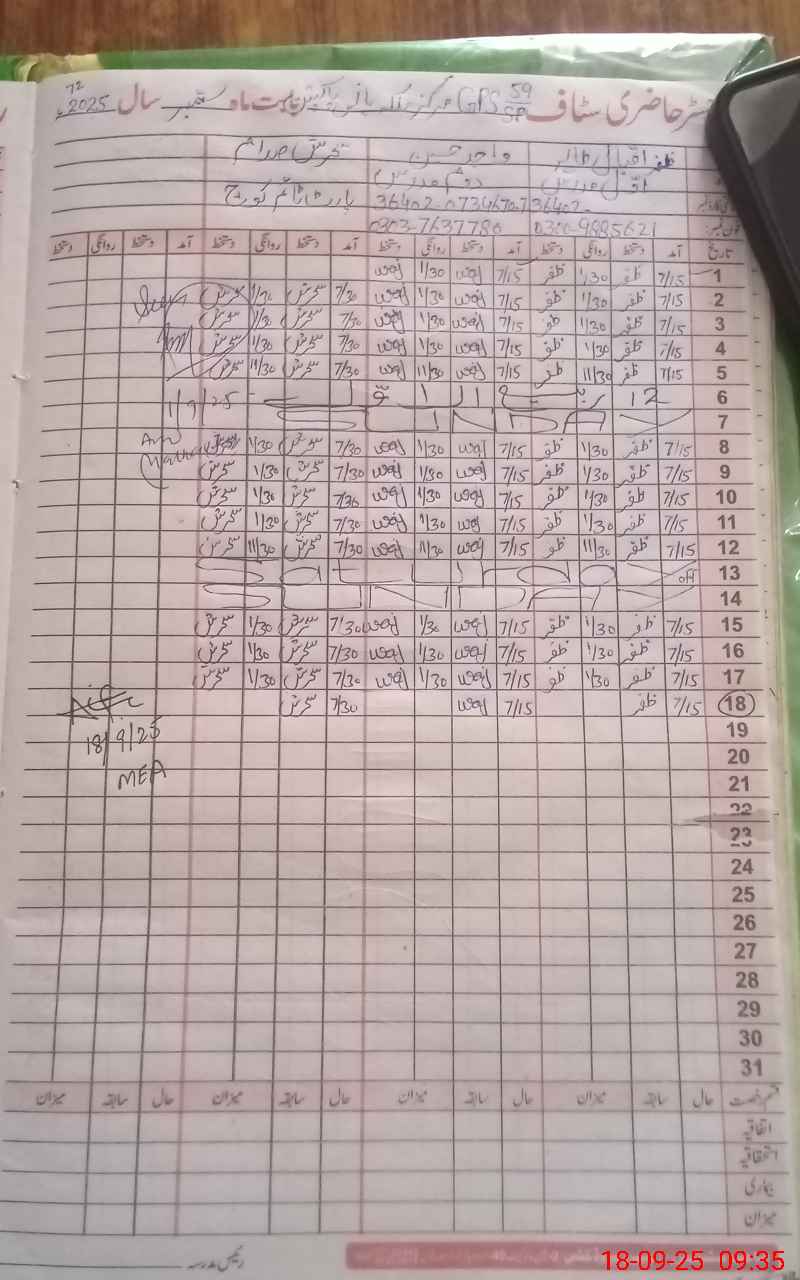 72
رجسٹر حاضری سٹاف GPS 59/SP مرکز ملکہ ہانس پاکپتن بابت ماہ ستمبر سال 2025ء
ظفر اقبال طاہر واجد حسین سحرش صدا
اوّل مدرس دوئم مدرس پارٹ ٹائم کوچ
36402-0734670-7 36402-
0300-9885621 0303-7637780
تاریخ آمد دستخط روانگی دستخط آمد دستخط روانگی دستخط آمد دستخط روانگی دستخط آمد دستخط روانگی دستخط
1 7/15 ظفر 1/30 ظفر 7/15 waj 1/30 waj
2 7/15 ظفر 1/30 ظفر 7/15 waj 1/30 waj 7/30 سحرش 1/30 سحرش
3 7/15 ظفر 1/30 ظفر 7/15 waj 1/30 waj 7/30 سحرش 1/30 سحرش
4 7/15 ظفر 1/30 ظفر 7/15 waj 1/30 waj 7/30 سحرش 1/30 سحرش
5 7/15 ظفر 11/30 ظفر 7/15 waj 11/30 waj 7/30 سحرش 11/30 سحرش
6 12 ربیع الاوّل
1/9/25
7 SUNDAY
8 7/15 ظفر 1/30 ظفر 7/15 waj 1/30 waj 7/30 سحرش 1/30 سحرش
9 7/15 ظفر 1/30 ظفر 7/15 waj 1/30 waj 7/30 سحرش 1/30 سحرش
10 7/15 ظفر 1/30 ظفر 7/15 waj 1/30 waj 7/30 سحرش 1/30 سحرش
11 7/15 ظفر 1/30 ظفر 7/15 waj 1/30 waj 7/30 سحرش 1/30 سحرش
12 7/15 ظفر 11/30 ظفر 7/15 waj 11/30 waj 7/30 سحرش 11/30 سحرش
13 off
14 SUNDAY
15 7/15 ظفر 1/30 ظفر 7/15 waj 1/30 waj 7/30 سحرش 1/30 سحرش
16 7/15 ظفر 1/30 ظفر 7/15 waj 1/30 waj 7/30 سحرش 1/30 سحرش
17 7/15 ظفر 1/30 ظفر 7/15 waj 1/30 waj 7/30 سحرش 1/30 سحرش
18 7/15 ظفر 7/15 waj 7/30 سحرش
19
18/9/25
20
MEA
21
22
23
24
25
26
27
28
29
30
31
قسم رخصت حال سابقہ میزان حال سابقہ میزان حال سابقہ میزان حال سابقہ میزان
اتفاقیہ
استحقاقیہ
بیماری
میزان
رئیس مدرسہ
18-09-25 09:35